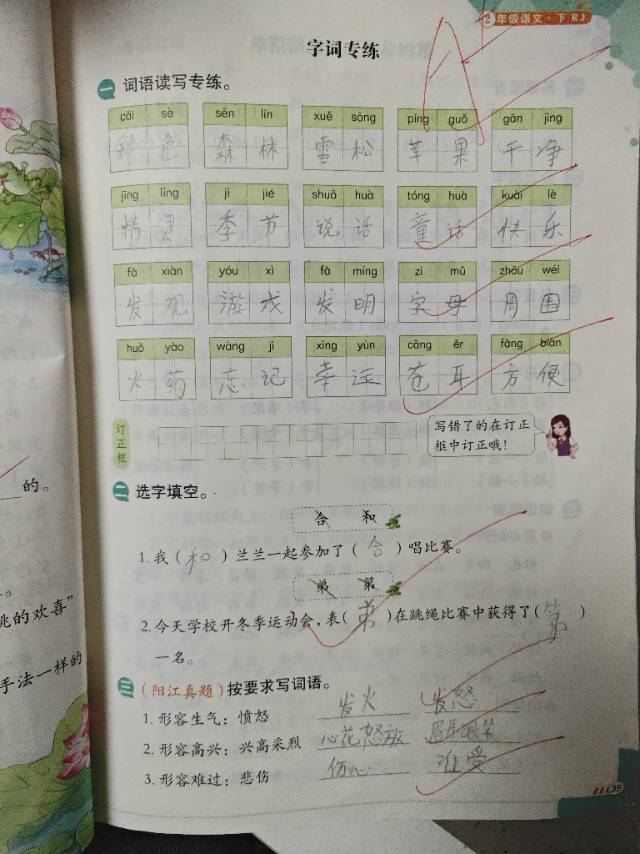 2年级语文·下 RJ
字词专练
一 词语读写专练。
cǎi sè sēn lín xuě sōng píng guǒ gān jìng
彩色 森林 雪松 苹果 干净
jīng líng jì jié shuō huà tóng huà kuài lè
精灵 季节 说话 童话 快乐
fā xiàn yóu xì fā míng zì mǔ zhōu wéi
发观 游戏 发明 字母 周围
huǒ yào wàng jì xìng yùn cāng ěr fāng biàn
火药 忘记 幸运 苍耳 方便
订正框
写错了的在订正
框中订正哦!
二 选字填空。
合 和
1. 我(和)兰兰一起参加了(合)唱比赛。
弟 第
2. 今天学校开冬季运动会,表(弟)在跳绳比赛中获得了(第)
一名。
三 (阳江真题)按要求写词语。
1. 形容生气:愤怒 发火 发怒
2. 形容高兴:兴高采烈 心花怒放 眉开眼笑
3. 形容难过:悲伤 伤心 难受
35
的。
兆的欢喜”
手法一样的